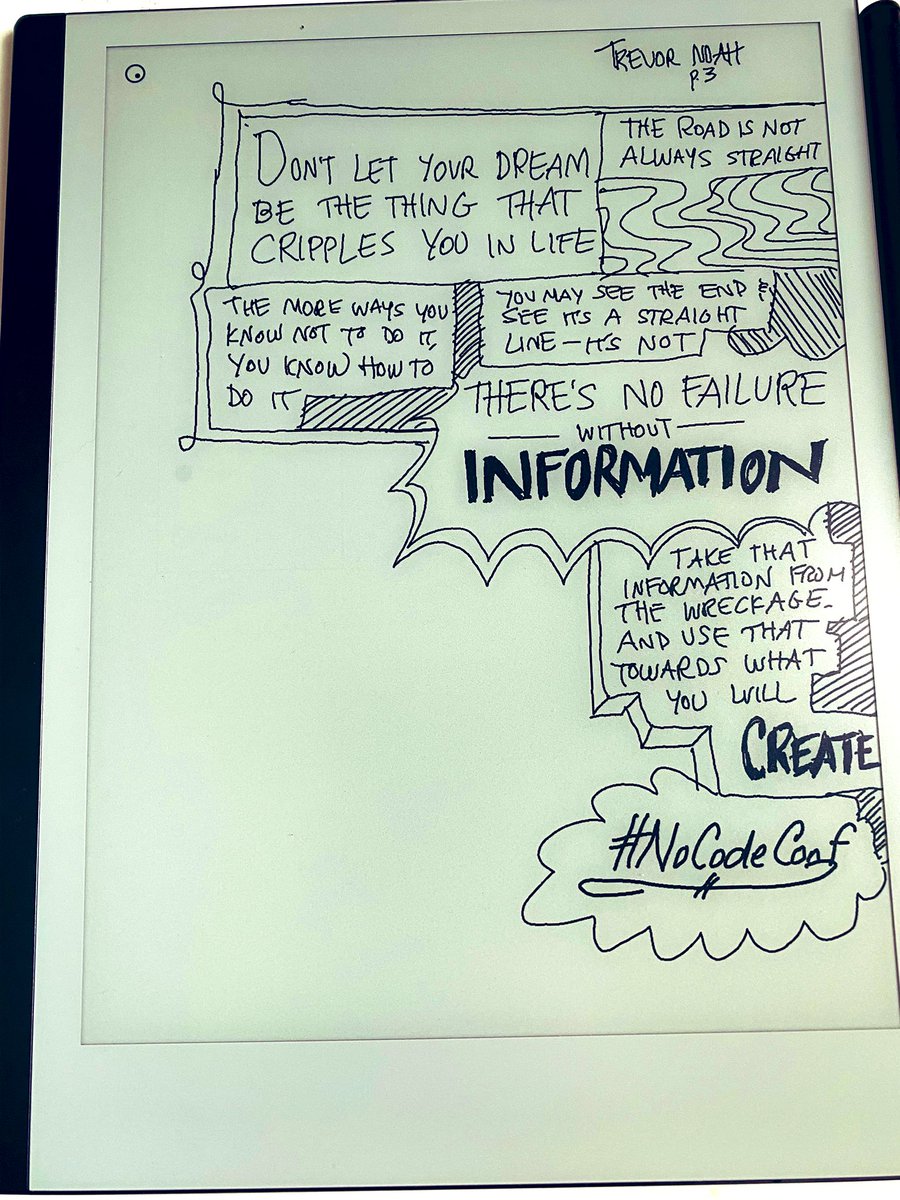 TREVOR NOAH
p.3
DON'T LET YOUR DREAM
BE THE THING THAT
CRIPPLES YOU IN LIFE
THE ROAD IS NOT
ALWAYS STRAIGHT
THE MORE WAYS YOU
KNOW NOT TO DO IT,
YOU KNOW HOW TO
DO IT
YOU MAY SEE THE END &
SEE IT'S A STRAIGHT
LINE — IT'S NOT
THERE'S NO FAILURE
— WITHOUT —
INFORMATION
TAKE THAT
INFORMATION FROM
THE WRECKAGE-
AND USE THAT
TOWARDS WHAT
YOU WILL
CREATE
#NoCodeConf